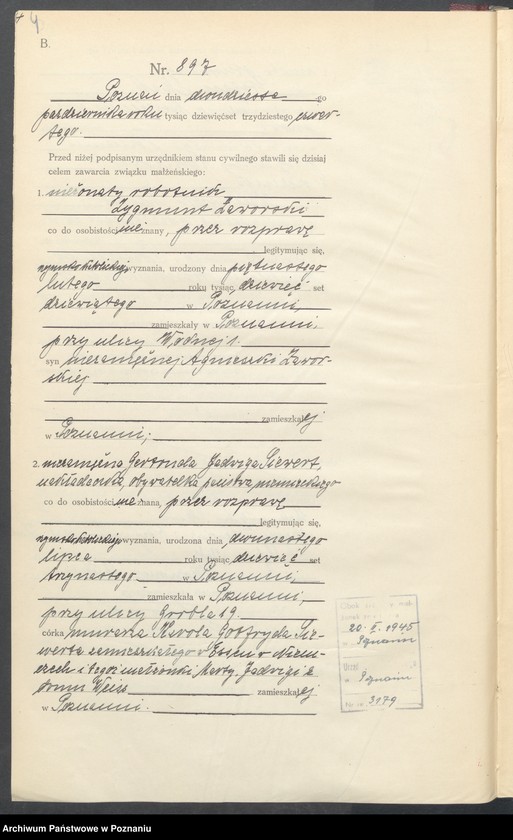 4
B.
Nr. 897
Poznań dnia dwudziestego
października roku tysiąc dziewięćset trzydziestego czwar-
tego.
Przed niżej podpisanym urzędnikiem stanu cywilnego stawili się dzisiaj
celem zawarcia związku małżeńskiego:
1. nieżonaty robotnik
Zygmunt Zaworski
co do osobistości nie znany, przez rozprawę
legitymując się,
rzymsko katolickiego wyznania, urodzony dnia piętnastego
lutego roku tysiąc dziewięć set
dziewiątego w Poznaniu,
zamieszkały w Poznaniu,
przy ulicy Wodnej 1.
syn niezamężnej Agnieszki Zawor-
skiej
zamieszkałej
w Poznaniu;
2. niezamężna Gertruda Jadwiga Siewert,
nakładaczka, obywatelka państwa niemieckiego
co do osobistości nie znana, przez rozprawę
legitymując się,
rzymsko katolickiego wyznania, urodzona dnia dwunastego
lipca roku tysiąc dziewięć set
trzynastego w Poznaniu,
zamieszkała w Poznaniu,
przy ulicy Grobla 19.
córka murarza Karola Gotfryda Sie-
werta zamieszkałego w Essen w Niem-
czech i tegoż małżonki Marty Jadwigi z
domu Weiss zamieszkałej
w Poznaniu.
20. 1945
Poznaniu
Urząd
w Poznaniu
Nr 3179
Archiwum Państwowe w Poznaniu